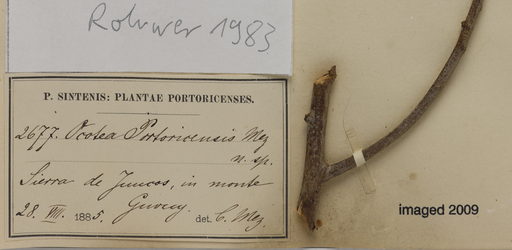 Rohwer 1983
P. SINTENIS: PLANTAE PORTORICENSES.
2677. Ocotea Portoricensis Mez
n. sp.
Sierra de Juncos, in monte
28. VIII. 1885. det. C. Mez.
imaged 2009